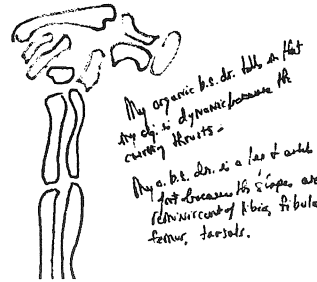 My organic b.s. dr. falls in that
my obj. is dynamic because the
curving thrusts.
My o. b.s. dr. is a leg & ankle
foot because the shapes are
reminiscent of tibia, fibula
femur, tarsals.